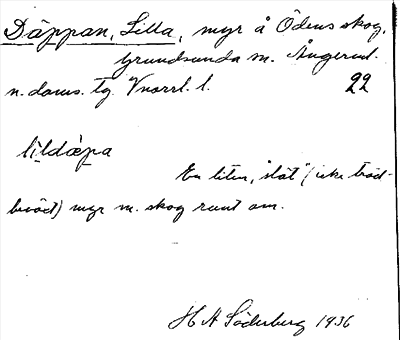 Däppan, Lilla, myr å Ödens skog,
Grundsunda sn. Ångerml.
n. doms. tg. Vnorrl. l. 22
lildæpa
En liten, "slät" (icke träd-
beväxt) myr m. skog runt om.
H A Söderberg 1936